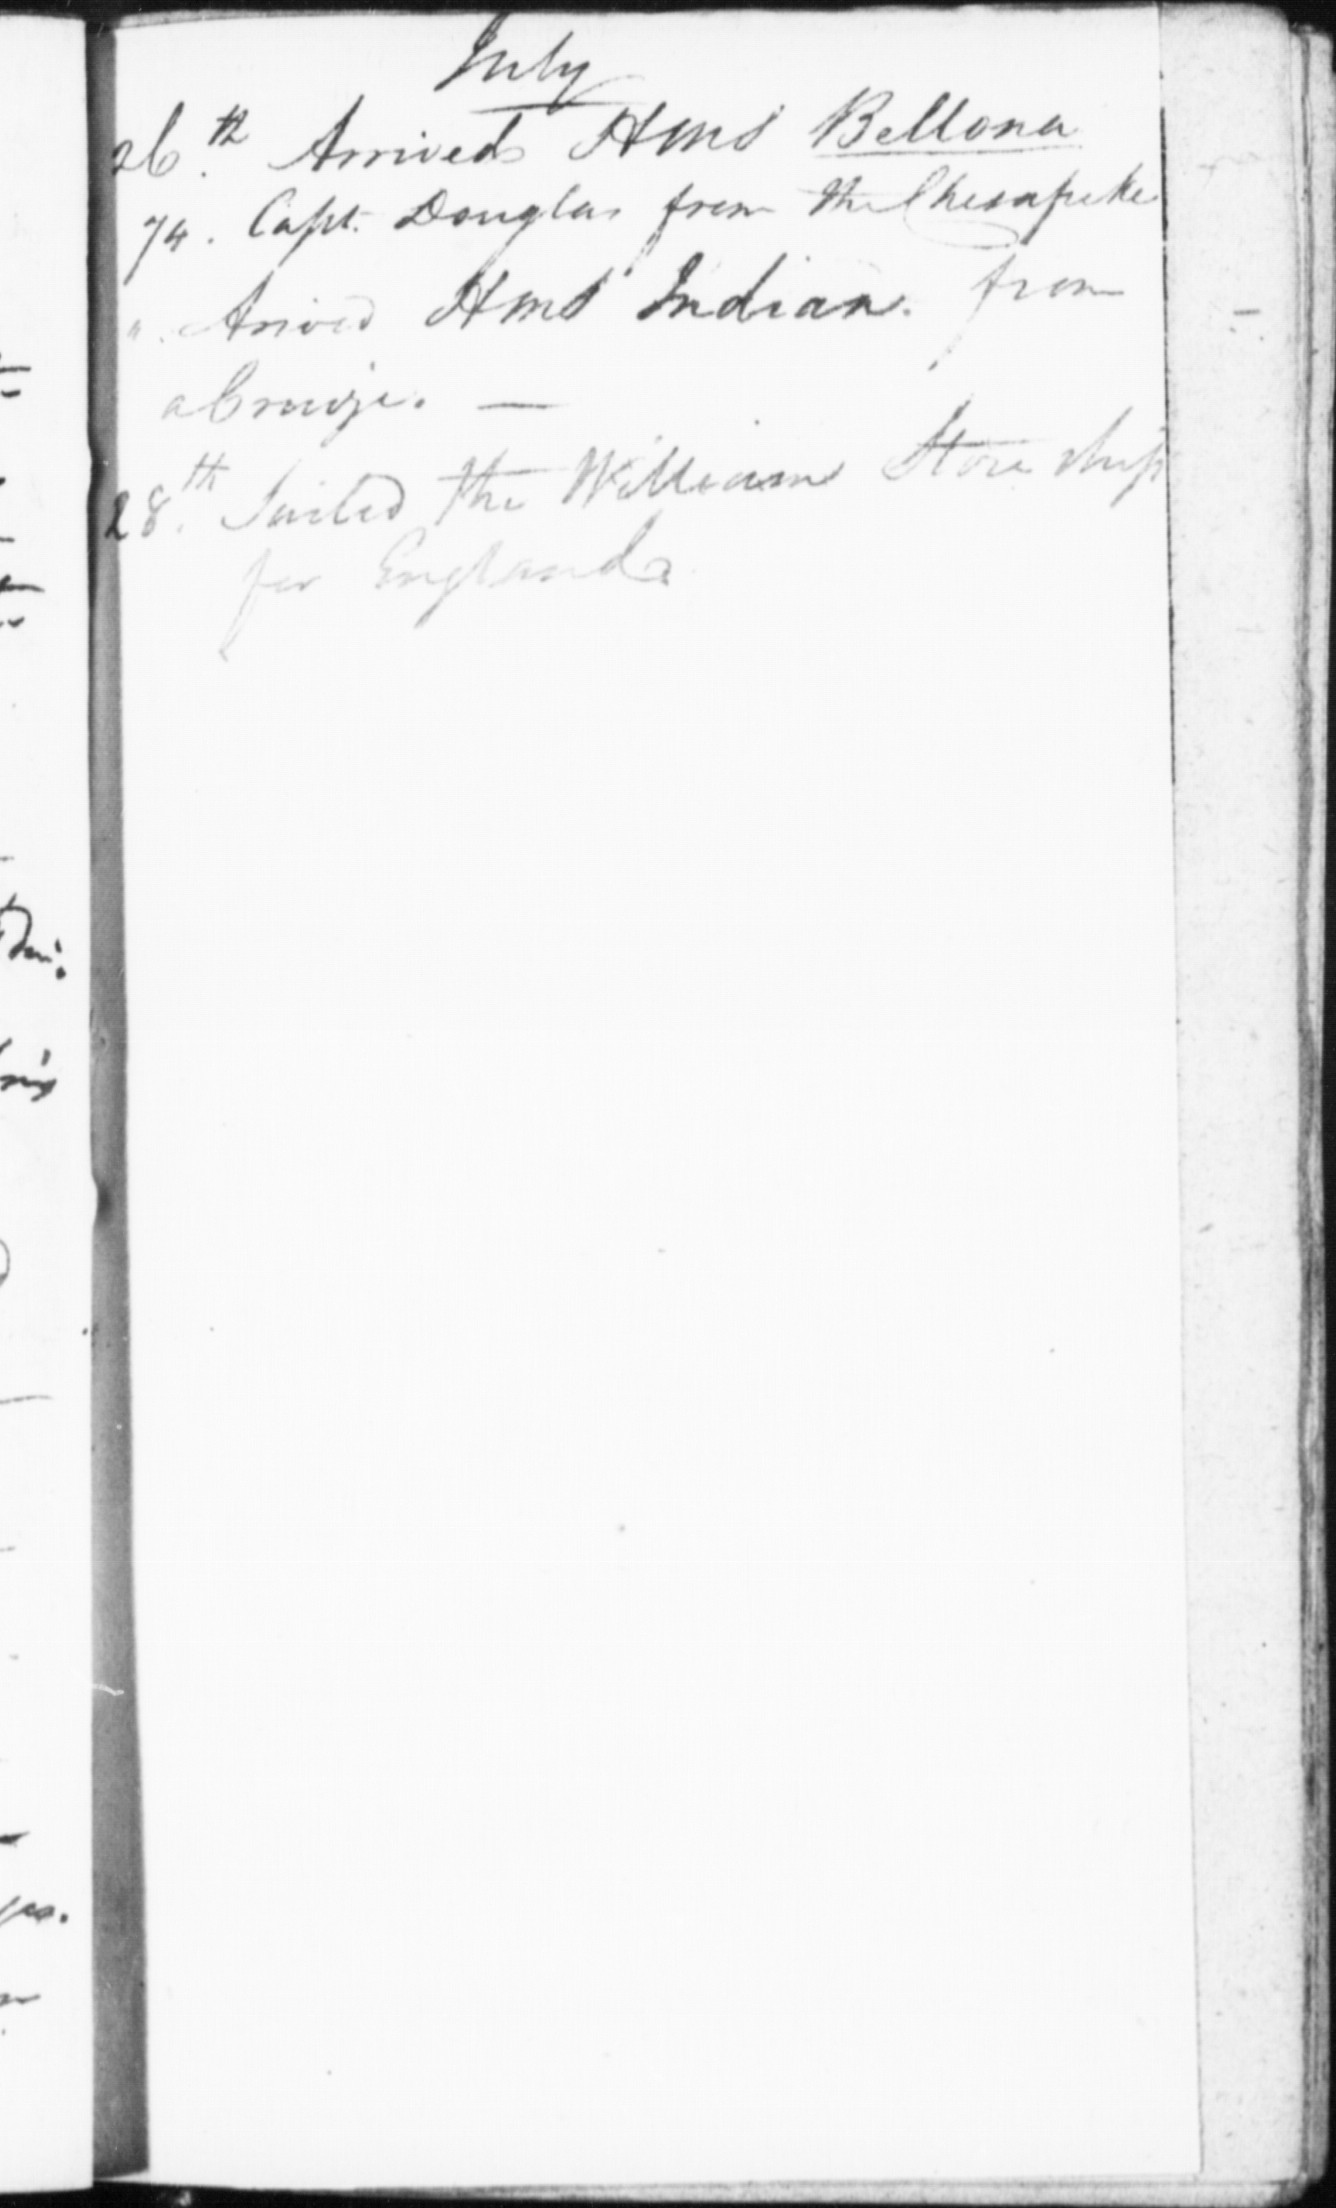 July
26th. Arrived HMS Bellona
74. Capt. Douglas from the Chesapeke
". Arived HMS Indian. from
a Cruize. —
28th. Sailed the William Store ship
for England